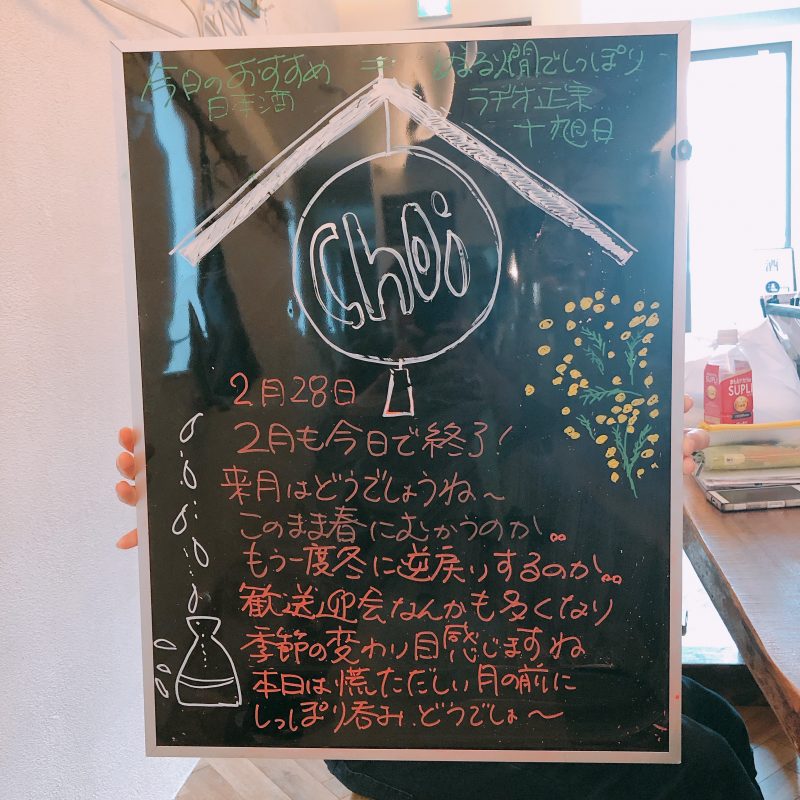 今日のおすすめ
日本酒
ぬる燗でしっぽり
ラヂオ正宗
十旭日
Choi
2月28日
2月も今日で終了!
来月はどうでしょうね〜
このまま春にむかうのか。。
もう一度冬に逆戻りするのか。。
歓送迎会なんかも多くなり
季節の変わり目感じますね
本日は慌ただしい月の前に
しっぽり呑み、どうでしょ〜
SUPLI